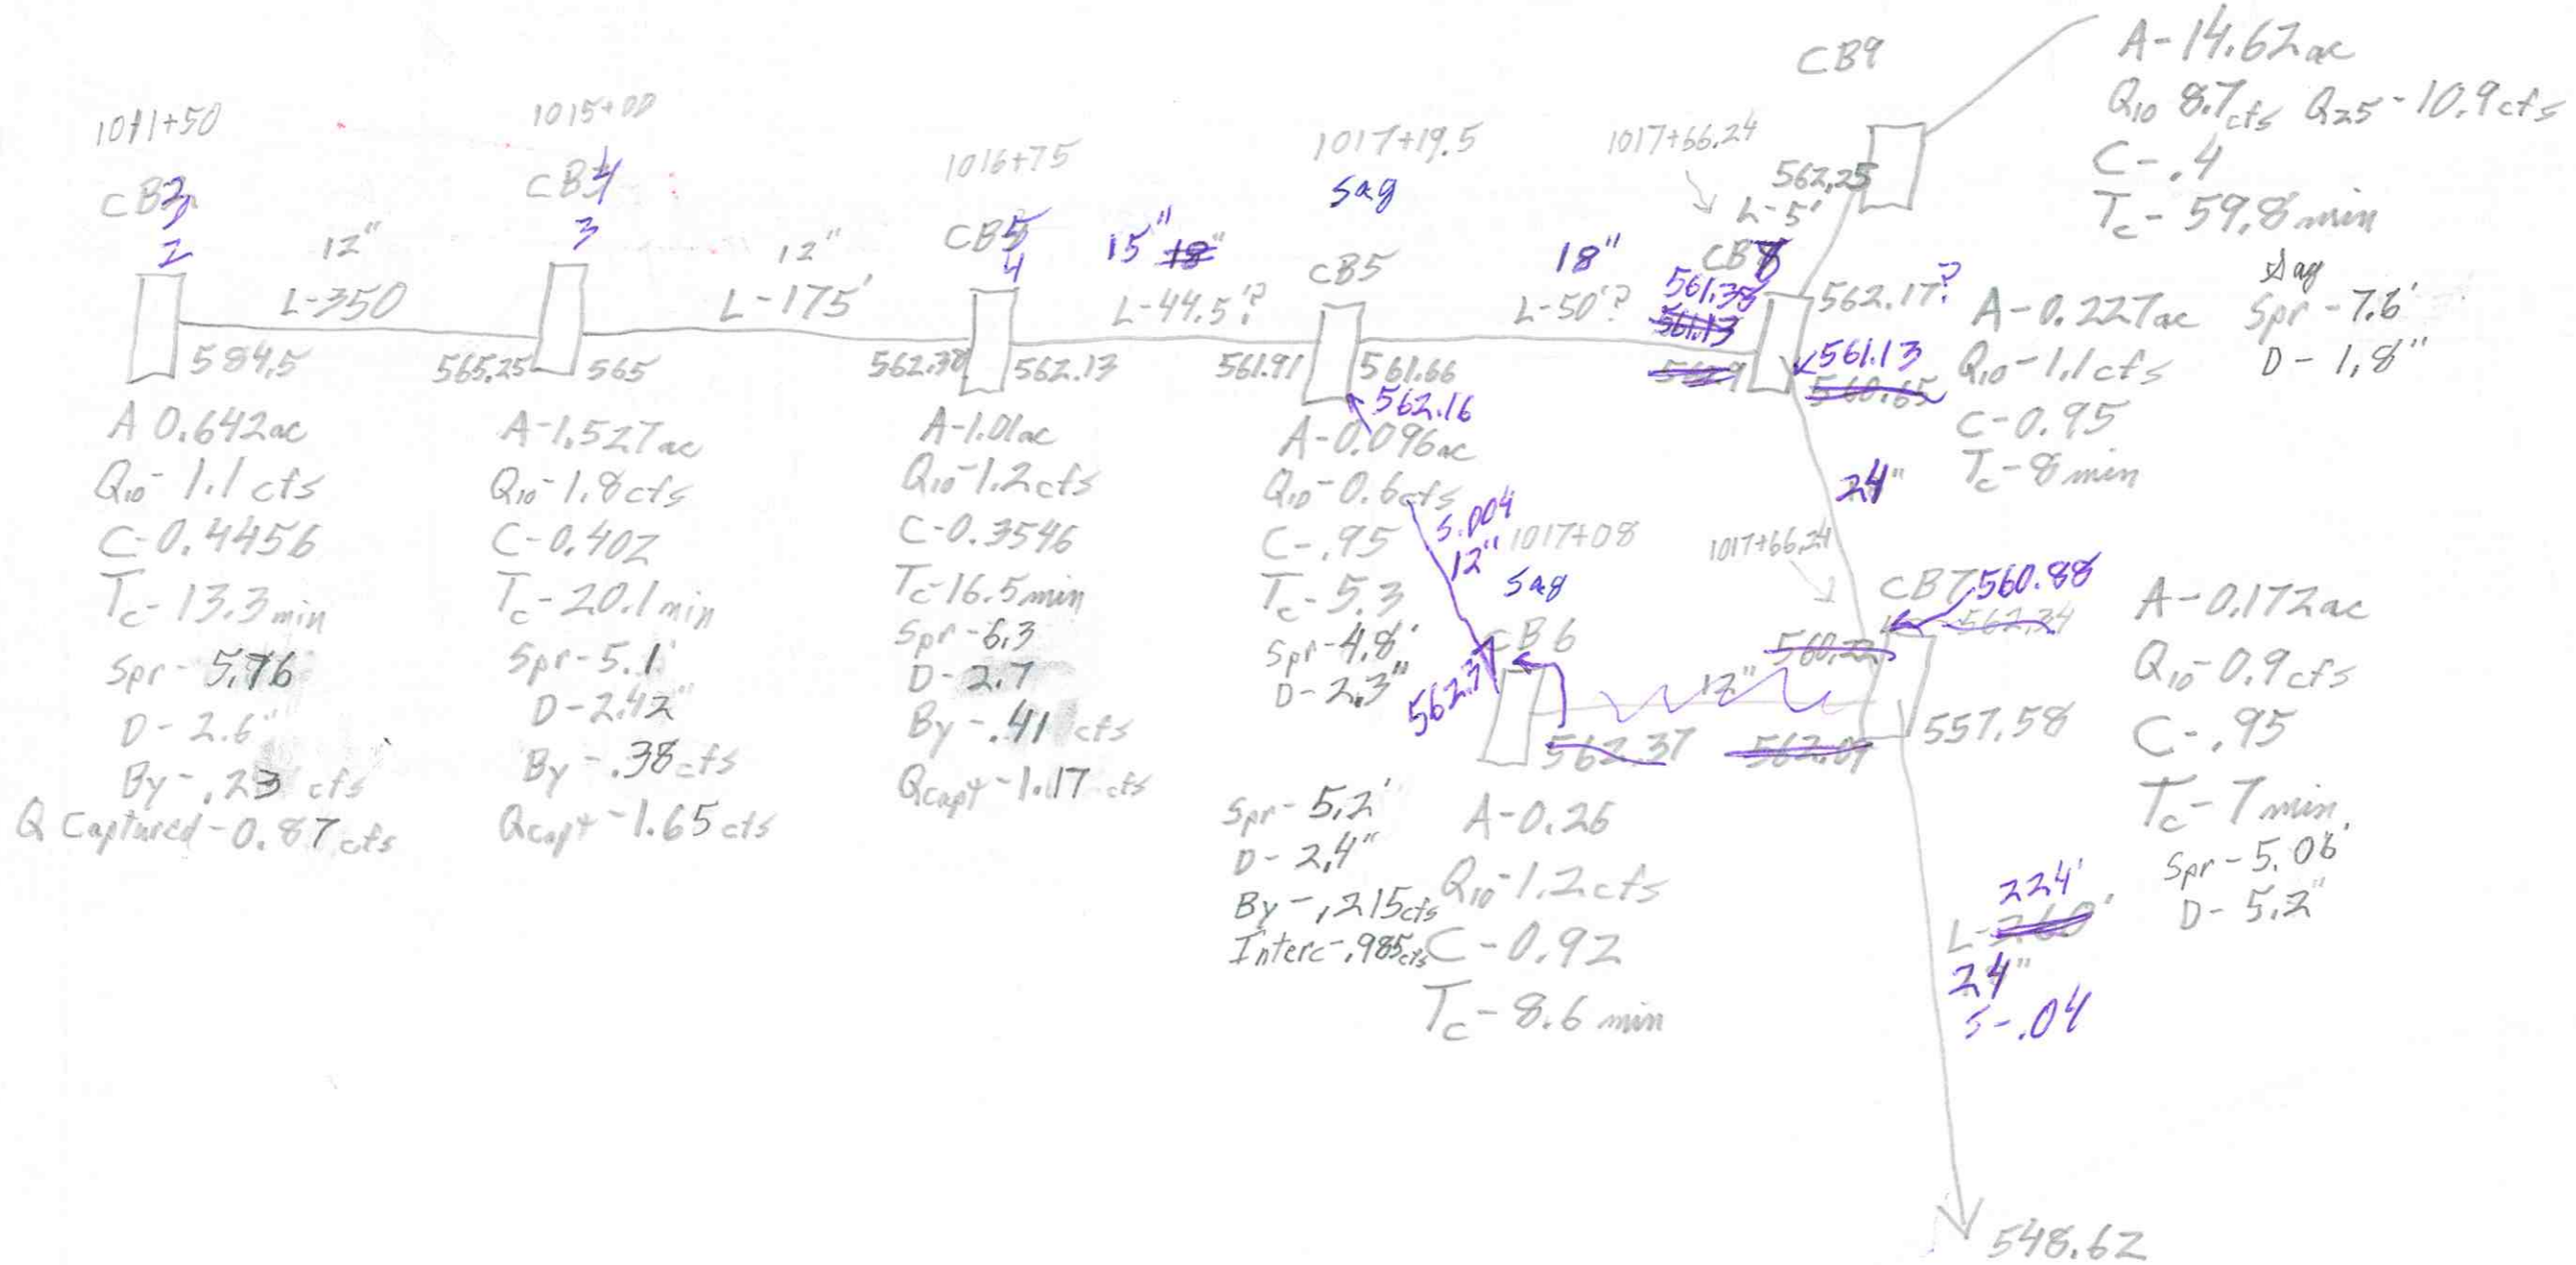 1011+50
CB2
2
12"
L-350
584.5
A 0.642ac
Q10-1.1cfs
C-0.4456
Tc-13.3min
Spr-5.76
D-2.6"
By-.23 cfs
Q Captured-0.87cfs
1015+00
CB4
3
565.25
565
A-1.527ac
Q10-1.8cfs
C-0.402
Tc-20.1min
Spr-5.1'
D-2.42"
By-.38cfs
Qcapt-1.65cfs
12"
L-175'
1016+75
CB5
4
562.38
562.13
A-1.01ac
Q10-1.2cfs
C-0.3546
Tc-16.5min
Spr-6.3
D-2.7
By-.41 cfs
Qcapt-1.17 cfs
15" 18"
L-44.5'?
1017+19.5
Sag
CB5
561.91
561.66
562.16
A-0.096ac
Q10-0.6cfs
C-.95
Tc-5.3
Spr-4.8'
D-2.3"
18"
L-50'?
S.004
12"
1017+08
Sag
CB6
562.37
562.37
12"
562.09
Spr-5.2'
D-2.4"
By-.215cfs
Interc-.985cfs
A-0.26
Q10-1.2cfs
C-0.92
Tc-8.6min
CB9
562.25
L-5'
A-14.62ac
Q10 8.7cfs Q25-10.9cfs
C-.4
Tc-59.8min
1017+66.24
CB8
561.38
561.13
562.17?
561.13
560.65
A-0.227ac
Q10-1.1cfs
C-0.95
Tc-8min
Sag
Spr-7.6'
D-1.8"
24"
1017+66.24
CB7
560.88
562.34
560.22
557.58
A-0.172ac
Q10-0.9cfs
C-.95
Tc-7min
Spr-5.06'
D-5.2"
224'
L-260'
24"
S-.04
548.62